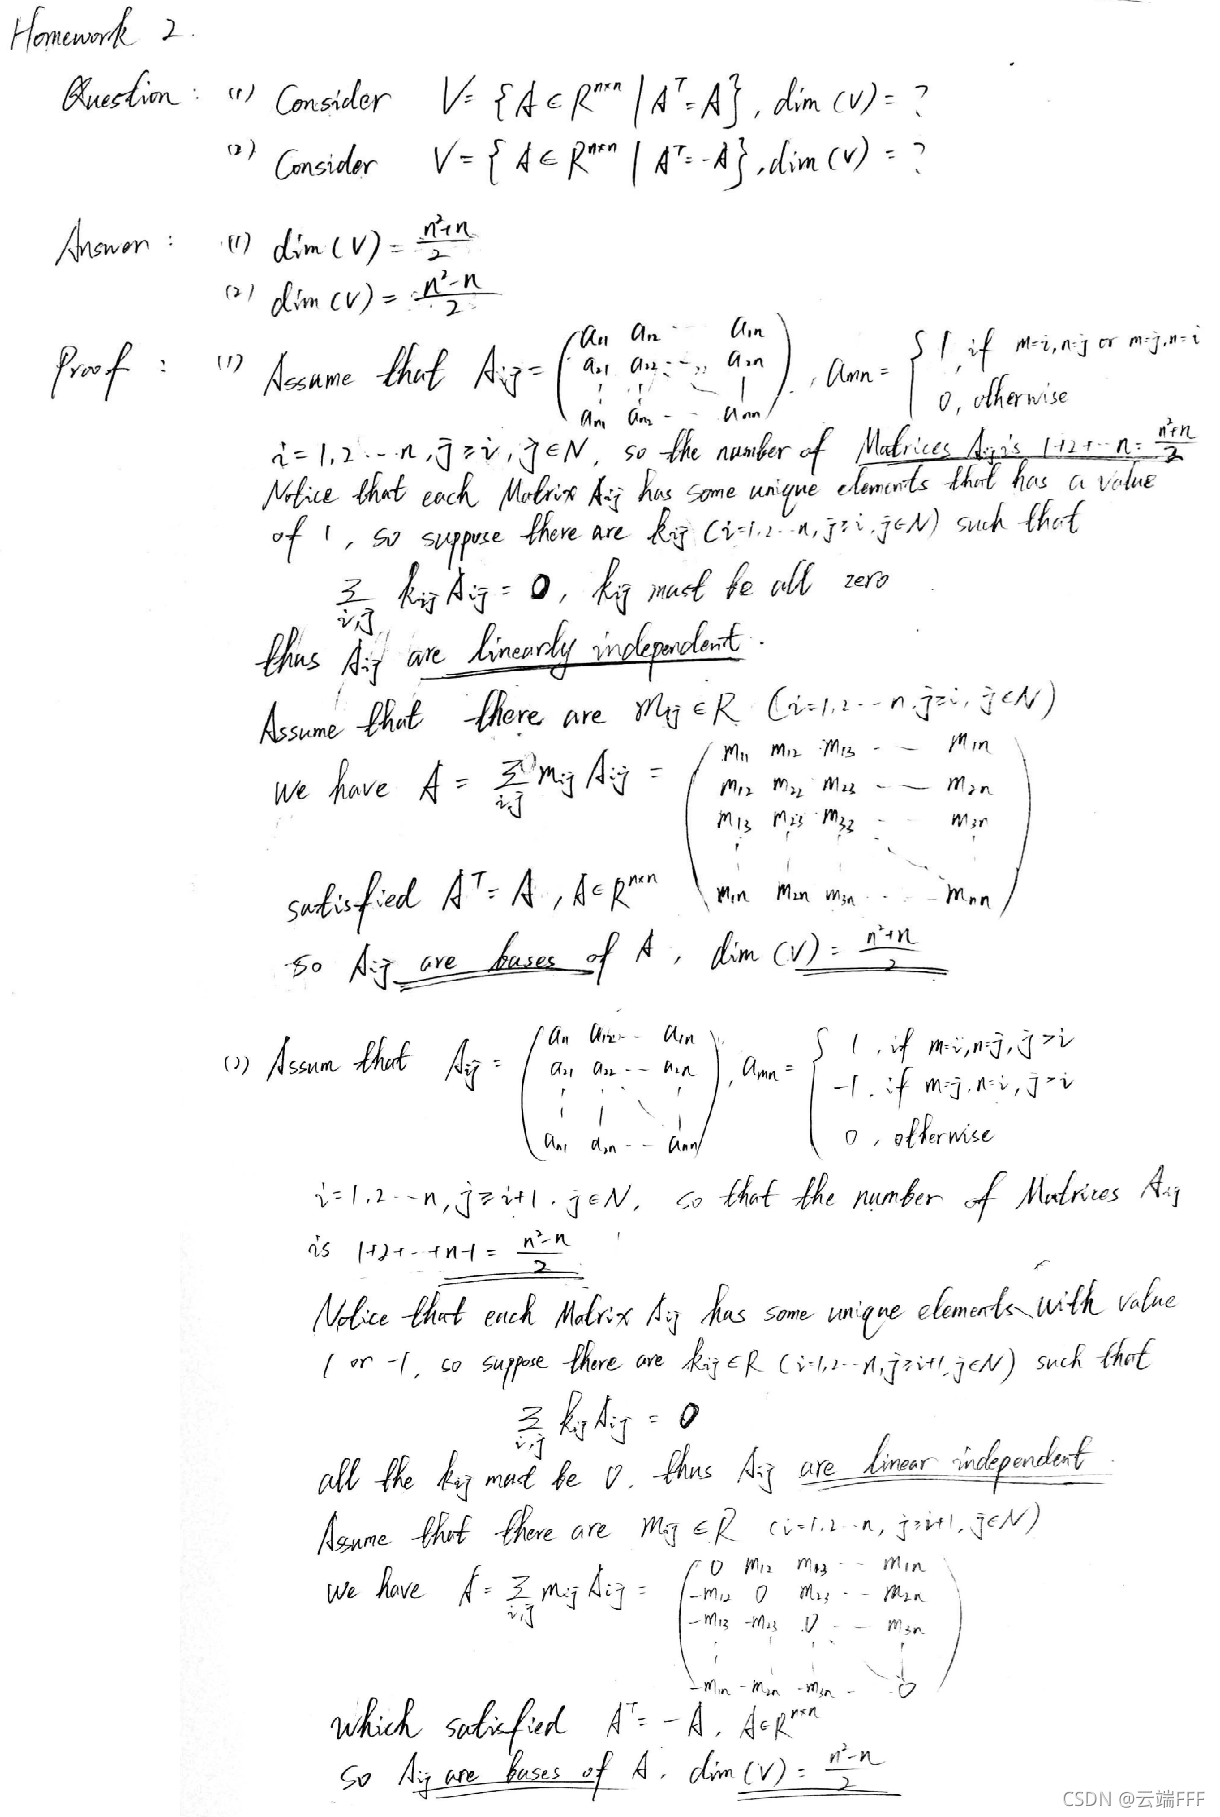 Homework 2.
Question: (1) Consider V = {A ∈ R^{n×n} | A^T = A}, dim(V) = ?
(2) Consider V = {A ∈ R^{n×n} | A^T = -A}, dim(V) = ?
Answer: (1) dim(V) = \frac{n^2+n}{2}
(2) dim(V) = \frac{n^2-n}{2}
Proof: (1) Assume that A_{ij} = \begin{pmatrix} a_{11} & a_{12} & \cdots & a_{1n} \\ a_{21} & a_{22} & \cdots & a_{2n} \\ \vdots & \vdots & \ddots & \vdots \\ a_{n1} & a_{n2} & \cdots & a_{nn} \end{pmatrix}, a_{mn} = \begin{cases} 1, if m=i, n=j or m=j, n=i \\ 0, otherwise \end{cases}
i=1,2⋯n, j≥i, j∈N, so the number of Matrices A_{ij} is 1+2+⋯n = \frac{n^2+n}{2}
Notice that each Matrix A_{ij} has some unique elements that has a value
of 1, so suppose there are k_{ij} (i=1,2⋯n, j≥i, j∈N) such that
\sum_{i,j} k_{ij} A_{ij} = 0, k_{ij} must be all zero
thus A_{ij} are linearly independent.
Assume that there are m_{ij} ∈ R (i=1,2⋯n, j≥i, j∈N)
we have A = \sum_{i,j} m_{ij} A_{ij} = \begin{pmatrix} m_{11} & m_{12} & m_{13} & \cdots & m_{1n} \\ m_{12} & m_{22} & m_{23} & \cdots & m_{2n} \\ m_{13} & m_{23} & m_{33} & \cdots & m_{3n} \\ \vdots & \vdots & \vdots & \ddots & \vdots \\ m_{1n} & m_{2n} & m_{3n} & \cdots & m_{nn} \end{pmatrix}
satisfied A^T = A, A ∈ R^{n×n}
so A_{ij} are bases of A, dim(V) = \frac{n^2+n}{2}
(2) Assum that A_{ij} = \begin{pmatrix} a_{11} & a_{12} & \cdots & a_{1n} \\ a_{21} & a_{22} & \cdots & a_{2n} \\ \vdots & \vdots & \ddots & \vdots \\ a_{n1} & a_{2n} & \cdots & a_{nn} \end{pmatrix}, a_{mn} = \begin{cases} 1, if m=i, n=j, j>i \\ -1, if m=j, n=i, j>i \\ 0, otherwise \end{cases}
i=1,2⋯n, j≥i+1, j∈N, so that the number of Matrices A_{ij}
is 1+2+⋯+n-1 = \frac{n^2-n}{2}
Notice that each Matrix A_{ij} has some unique elements with value
1 or -1, so suppose there are k_{ij} ∈ R (i=1,2⋯n, j≥i+1, j∈N) such that
\sum_{i,j} k_{ij} A_{ij} = 0
all the k_{ij} must be 0, thus A_{ij} are linear independent.
Assume that there are m_{ij} ∈ R (i=1,2⋯n, j≥i+1, j∈N)
we have A = \sum_{i,j} m_{ij} A_{ij} = \begin{pmatrix} 0 & m_{12} & m_{13} & \cdots & m_{1n} \\ -m_{12} & 0 & m_{23} & \cdots & m_{2n} \\ -m_{13} & -m_{23} & 0 & \cdots & m_{3n} \\ \vdots & \vdots & \vdots & \ddots & \vdots \\ -m_{1n} & -m_{2n} & -m_{3n} & \cdots & 0 \end{pmatrix}
which satisfied A^T = -A, A ∈ R^{n×n}
so A_{ij} are bases of A, dim(V) = \frac{n^2-n}{2}
CSDN @云端FFF